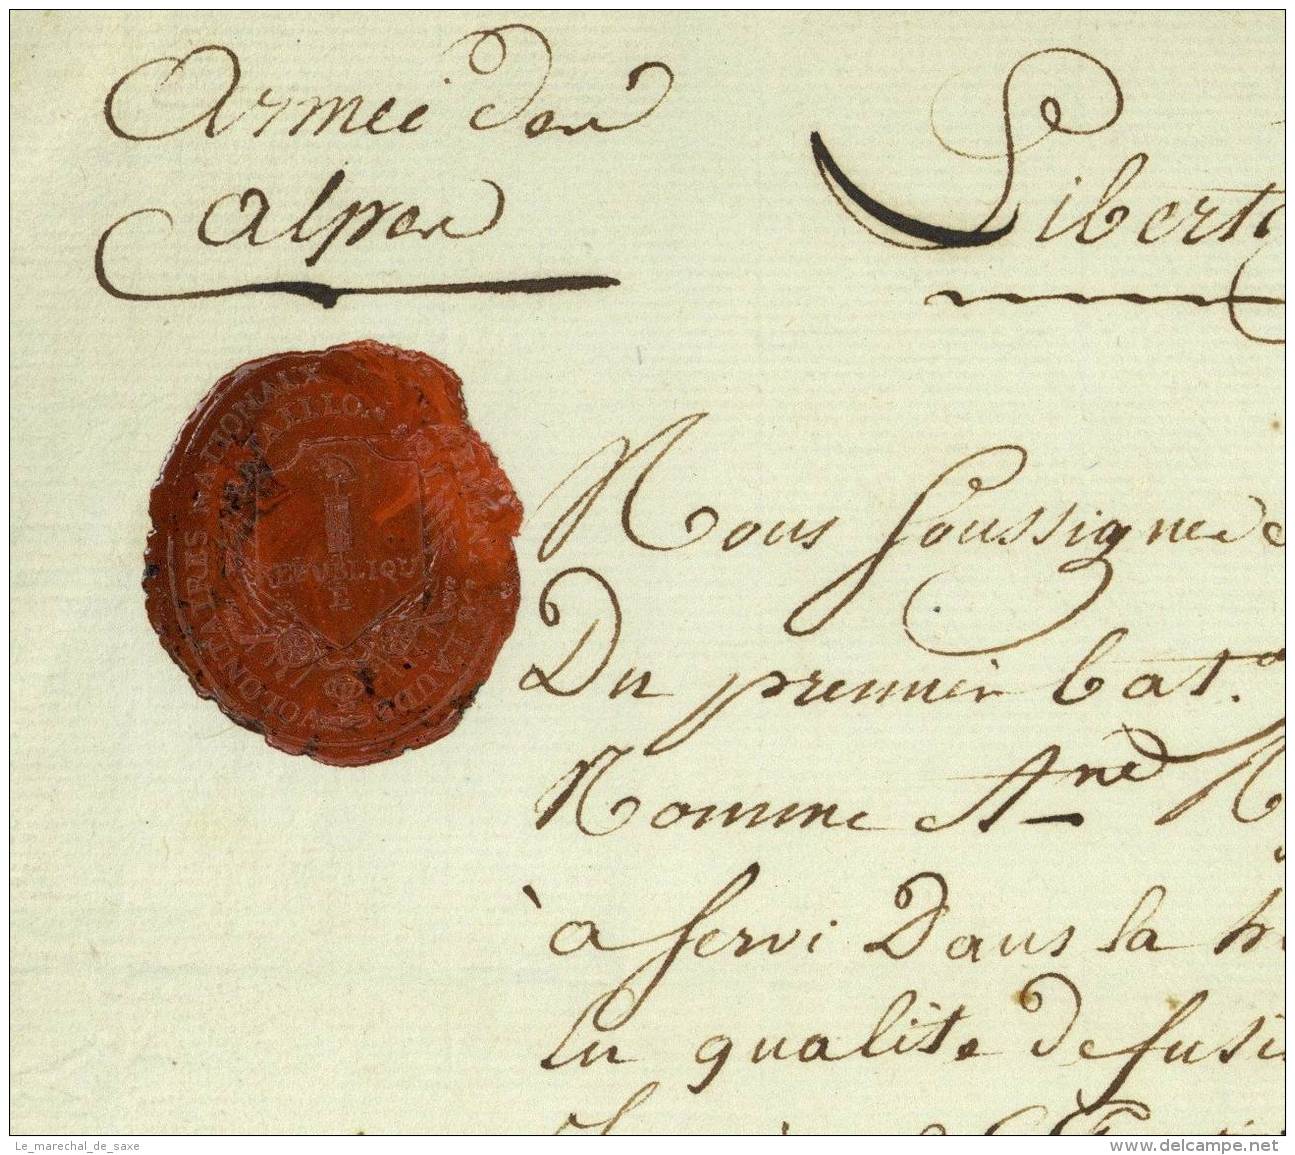 Armée des
Alpes
Liberté
VOLONTAIRES NATIONAUX
BATAILLON
RÉPUBLIQU
E
DE L'AUDE
Nous Soussignés
Du premier bat.
Nomme At ne
à servi Dans la
En qualité de fusi
Le_marechal_de_saxe
delcampe.net